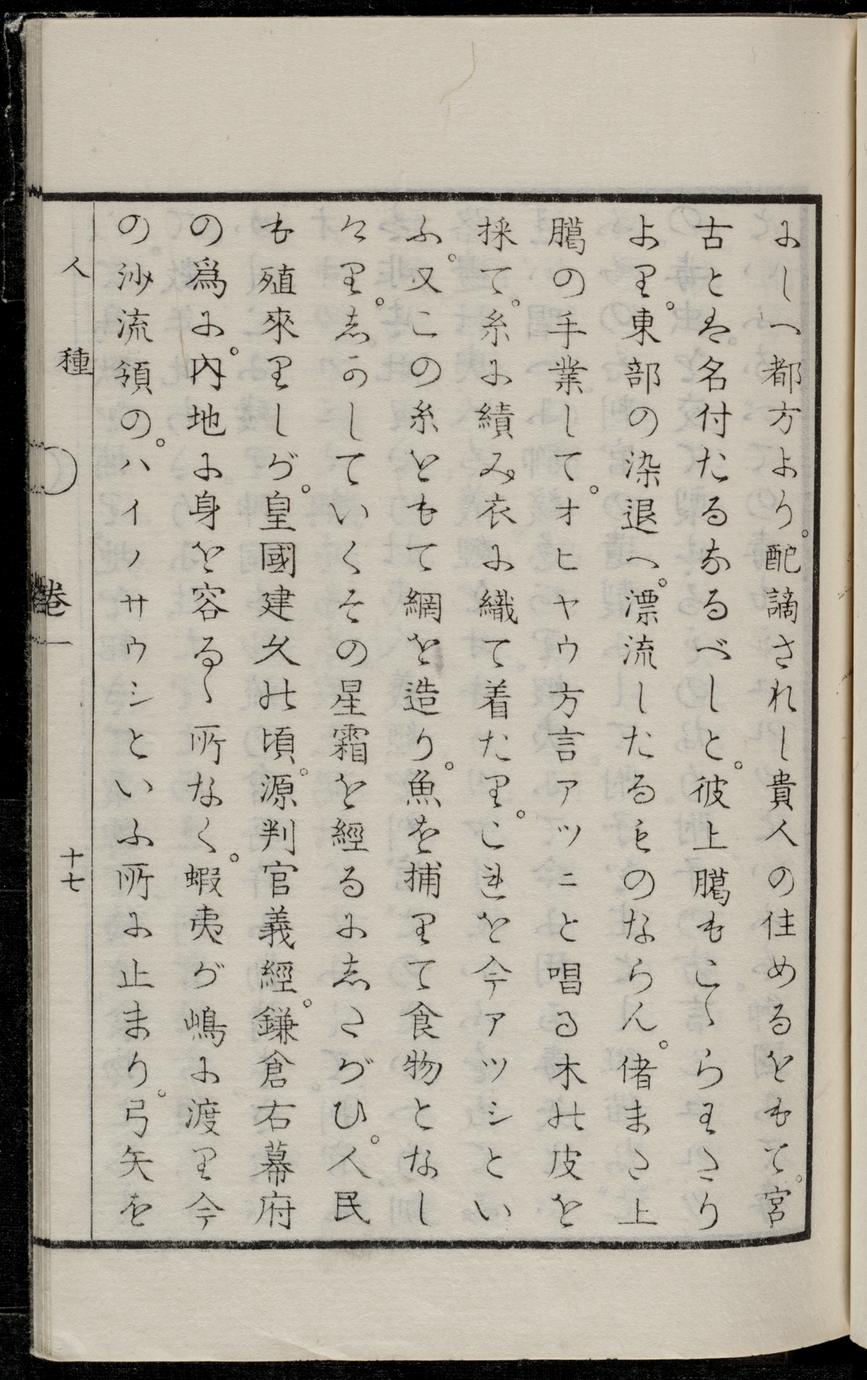 にしへ都方より。配謫されし貴人の住めるをもて。宮
古とは。名付たるなるべしと。彼上臈もこゝらわたり
より。東部の染退へ。漂流したるものならん。偖また上
臈の手業して。オヒヤウ方言アツニと唱る木の皮を
採て。糸に績み衣に織て着たり。これを今アツシとい
ふ。又この糸をもて網を造り。魚を捕りて食物となし
けり。しかしていくその星霜を經るにしたがひ。人民
も殖來りしが。皇國建久の頃。源判官義經。鎌倉右幕府
の爲に。内地に身を容るゝ所なく。蝦夷が嶋に渡り今
の沙流領の。ハイノサウシといふ所に止まり。弓矢を
人種
卷一
十七